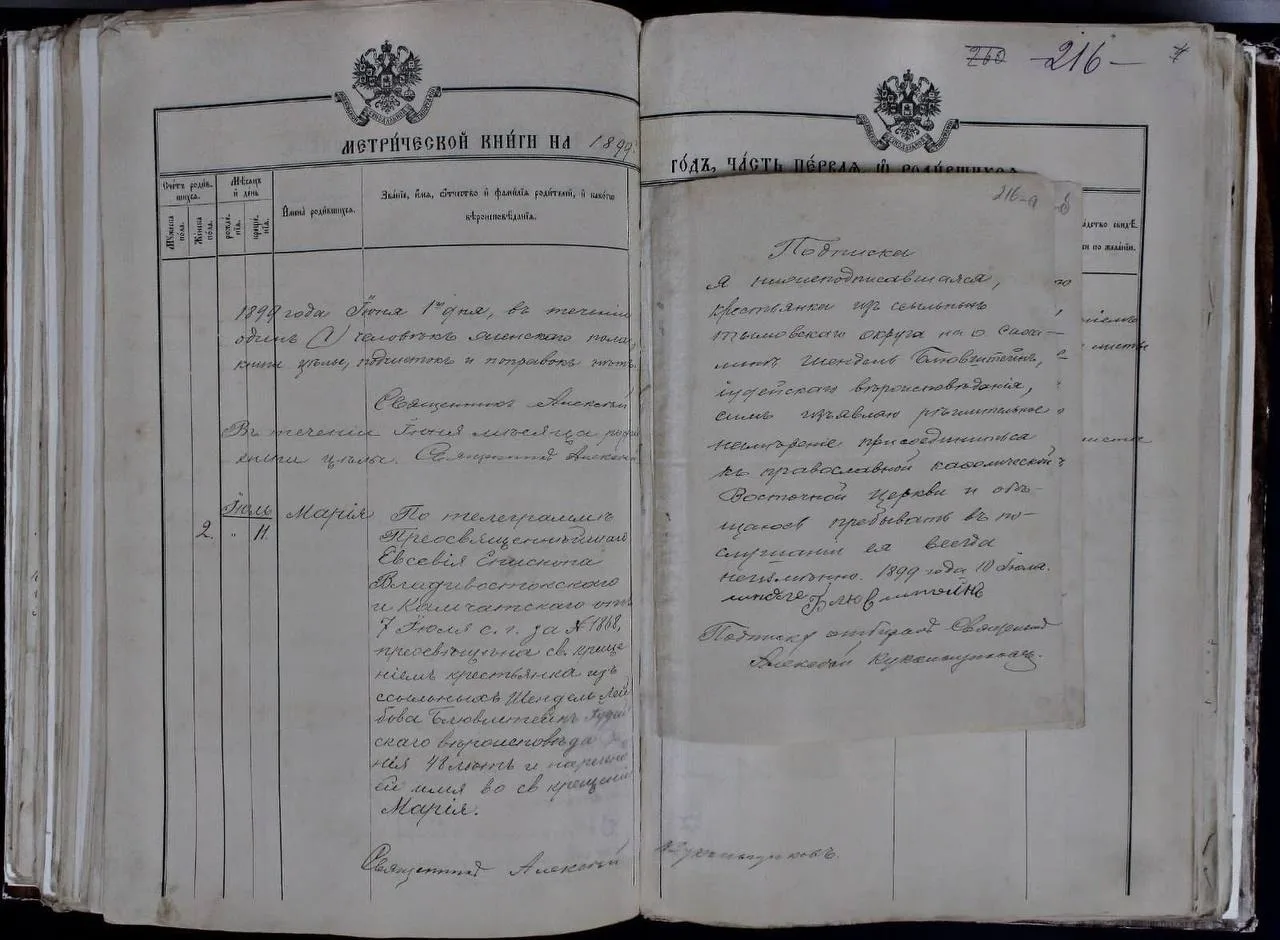 260 -216-
МЕТРИ́ЧЕСКОЙ КНИ́ГИ НА 1899
ГО́ДЪ, ЧА́СТЬ ПЕ́РВАЯ, Ѡ РОДИ́ВШИХСЯ
Сче́тъ роди́вшихся.
Му́жеска по́ла.
Же́нска по́ла.
Мѣ́сяцъ и день
рожде́нія.
креще́нія.
Имена̀ роди́вшихся.
Зва́ніе, и́мя, ѻ́тчество и фами́лія роди́телей, и како́гω
вѣроисповѣ́данія.
1899 года Іюня 1го дня, въ теченіи
одинъ (1) человѣкъ женскаго пола,
книги цѣлы, подчистокъ и поправокъ нѣтъ.
Священникъ Алексѣй
Въ теченіи Іюня мѣсяца
книги цѣлы. Священникъ Алексѣй
Іюль
2. " 11. Марія По телеграммѣ
Преосвященнѣйшаго
Евсевія Епископа
Владивостокскаго
и Камчатскаго отъ
7 Іюля с. г. за № 1868,
просвѣщена св. креще
ніемъ крестьянка изъ
ссыльныхъ Шендель Лей
бова Блювштейнъ Іудей
скаго вѣроисповѣда
нія 48 лѣтъ и наречено
ей имя во св. крещеніи
Марія.
Священникъ Алексѣй Кукольщиковъ.
216-а
Подписка
Я нижеподписавшаяся,
крестьянка изъ ссыльныхъ
Тымовскаго округа на о Саха-
линѣ Шендель Блювштейнъ,
іудейскаго вѣроисповѣданія,
симъ изъявляю рѣшительное
намѣреніе присоединиться
къ православной каѳолической
Восточной Церкви и обѣ-
щаюсь пребывать въ по-
слушаніи ея всегда
неизмѣнно. 1899 года 10 Іюля.
Блювштейнъ
Подписку отбиралъ Священникъ
Алексѣй Кукольщиковъ.